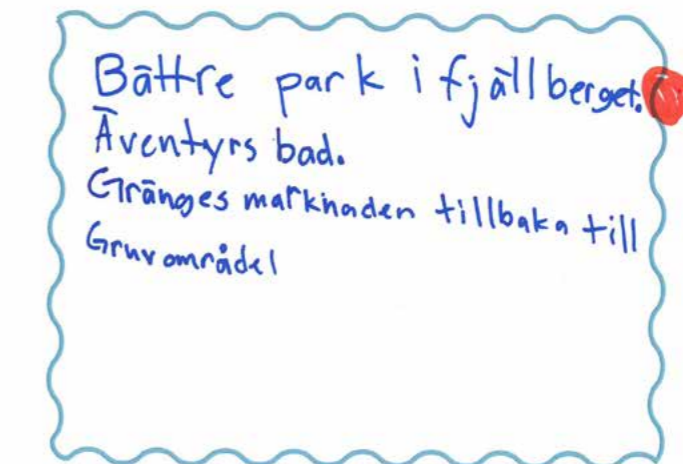 Bättre park i fjällberget.
Äventyrs bad.
Gränges marknaden tillbaka till
Gruvområdet